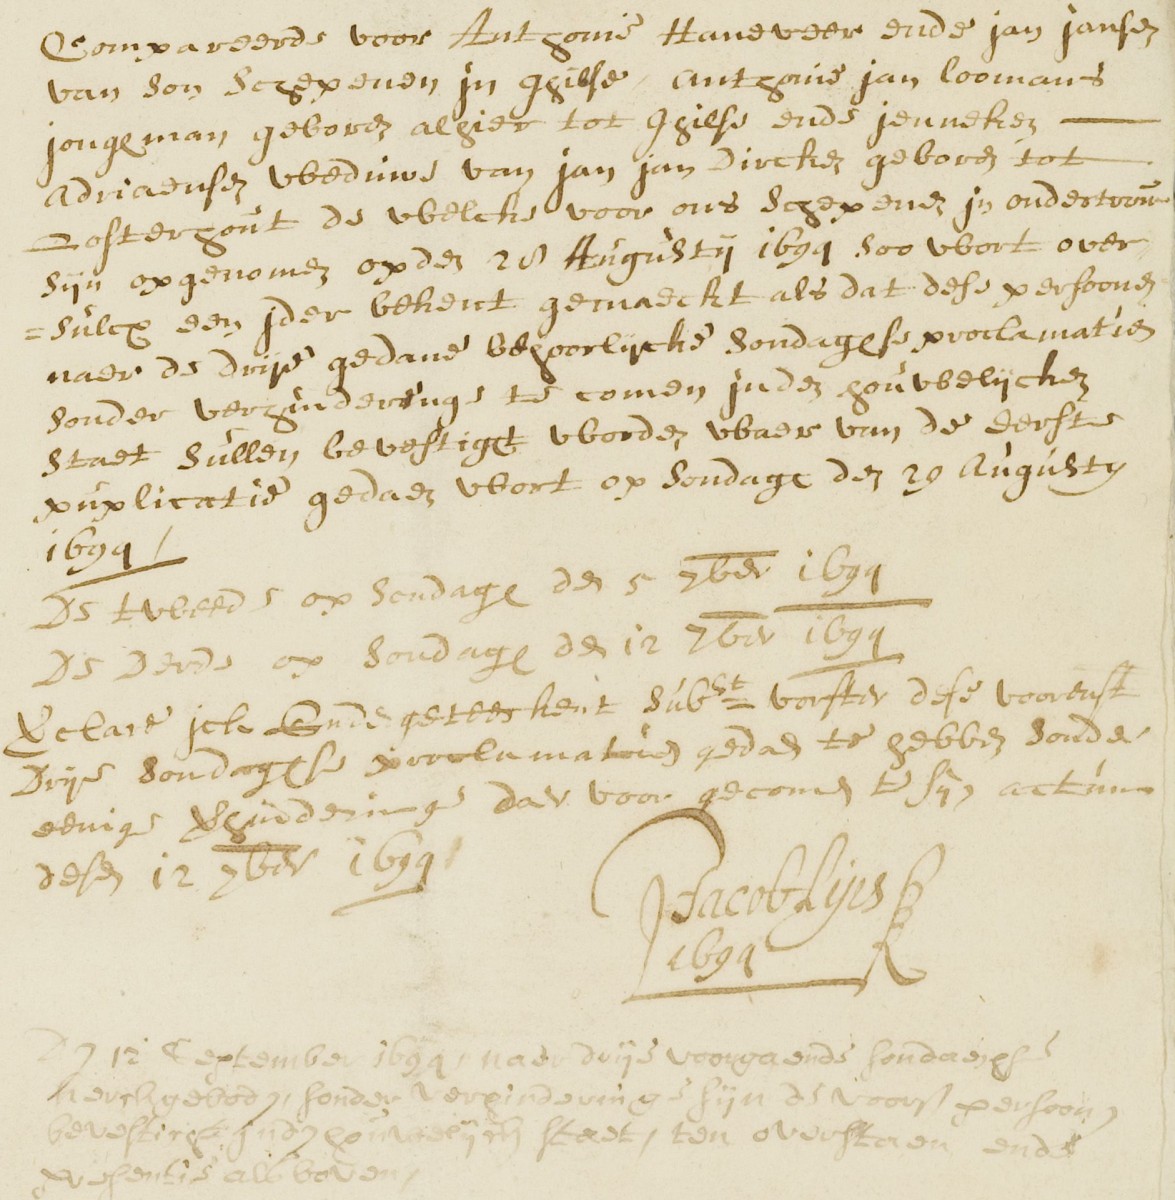 Compareerde voor Anthonie Haneveer ende jan jansen
van Son Schepenen jn Ghilse, Anthonie jan loomans
jonghman geboren alhier tot Ghilse ende jenneken
Adriaensen wbeduwe van jan jan Dircken geboren tot
Oosterhout de wbelcke voor ons Schepenen jn ondertrouw
sijn opgenomen opden 28 Augustij 1694 soo wbort over
=sulcx een jder bekent gemaeckt als dat dese persoonen
naer de drije gedane behoorlijcke sondaeghse proclamatien
sonder verhinderinge te comen jnden houwbelijcken
staet sullen bevestight wborden wbaer van de eerste
puplicatie gedaen wbort op sondagh den 29 Augusty
1694 /
De twbeede op sondagh den 5 7ber 1694
De derde op sondagh den 12 7ber 1694
Verclare jck ondergeteekent subst vorster dese voorenst
drije sondaghse proclamatien gedaen te hebben sonder
eenige verhinderinge daer voor gecomen te sijn actum
desen 12 7ber 1694
Jacob Sijes
1694
Den 12 September 1694, naer drije voorgaende sondaeghse
kerckgeboden, sonder verhinderinge sijn de voors persoonen
bevesticht jnden houwelijck staet, ten overstaen ende
presentie als boven,